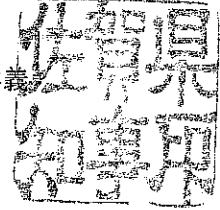 佐賀県
知事印
義